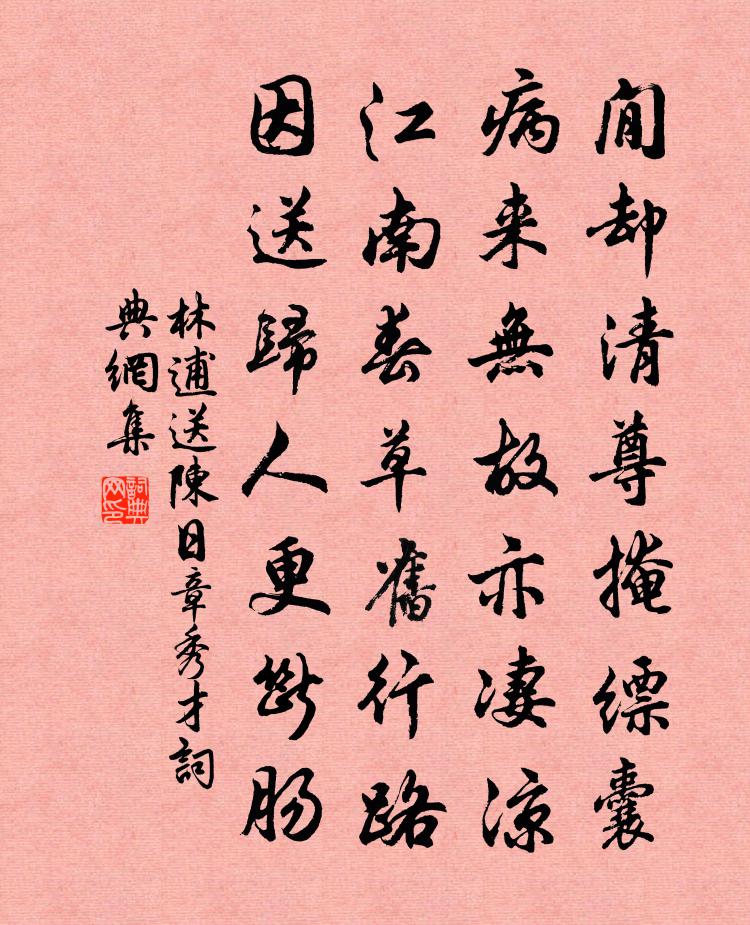 閒却清尊掩縹囊
病来無故亦凄凉
江南春草舊行路
因送歸人更斷腸
林逋送陳日章秀才詞
典網集
詞典網印